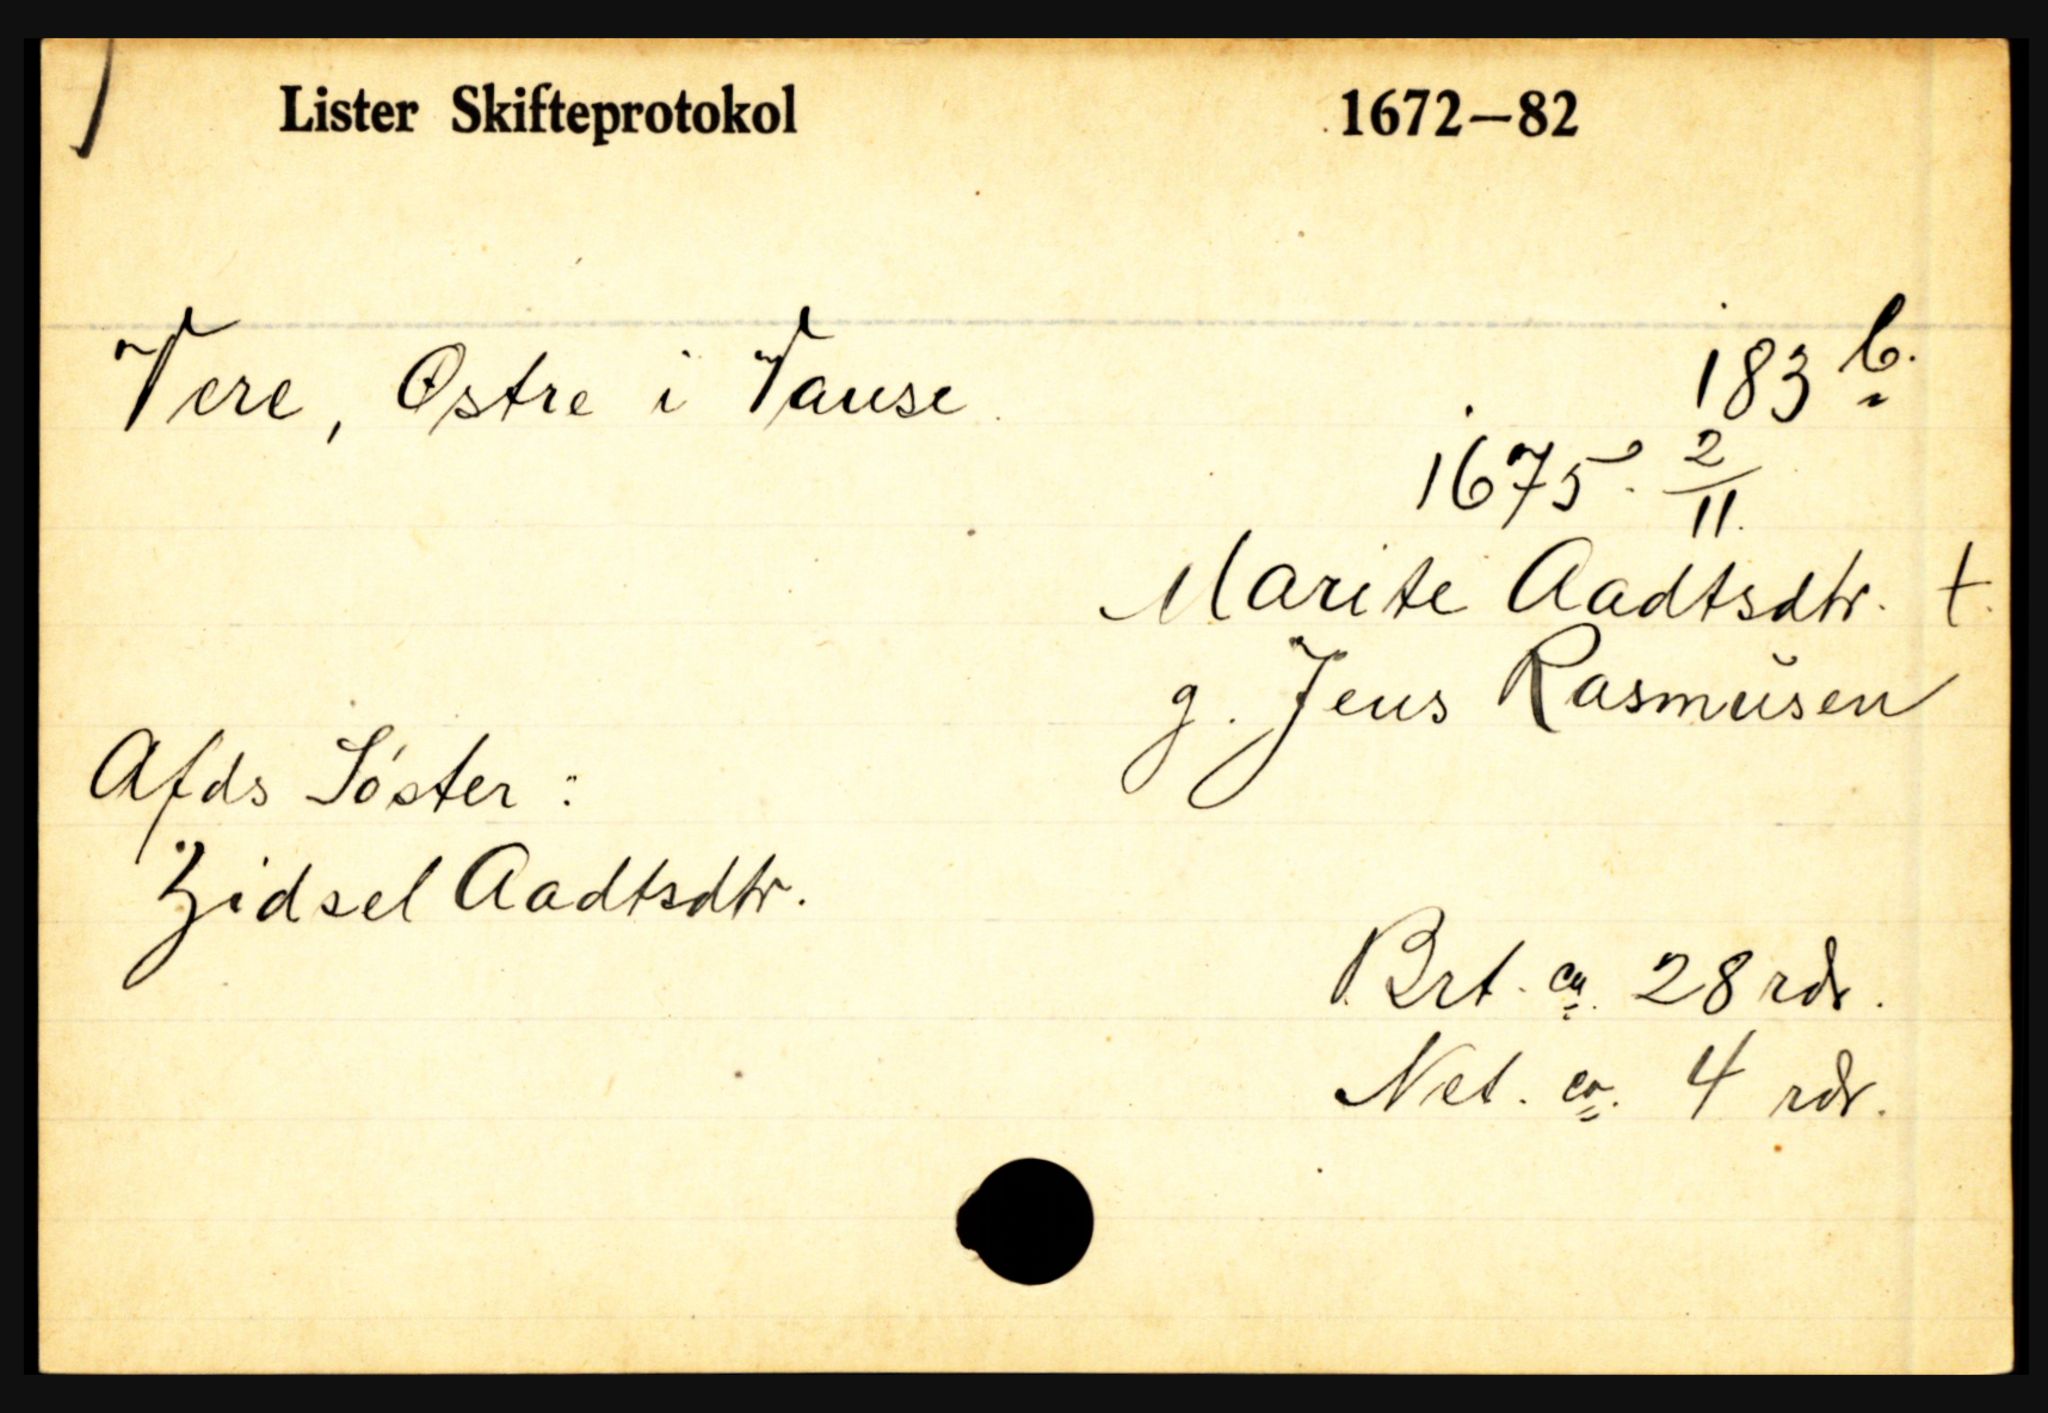 Lister Skifteprotokol 1672–82
Vere, Østre i Vanse 183 b.
1675. 2/11.
Marite Aadtsdtr. †.
g. Jens Rasmusen
Afds Söster:
Zidsel Aadtsdtr.
Brt. ca. 28 rdr.
Net. ca. 4 rdr.